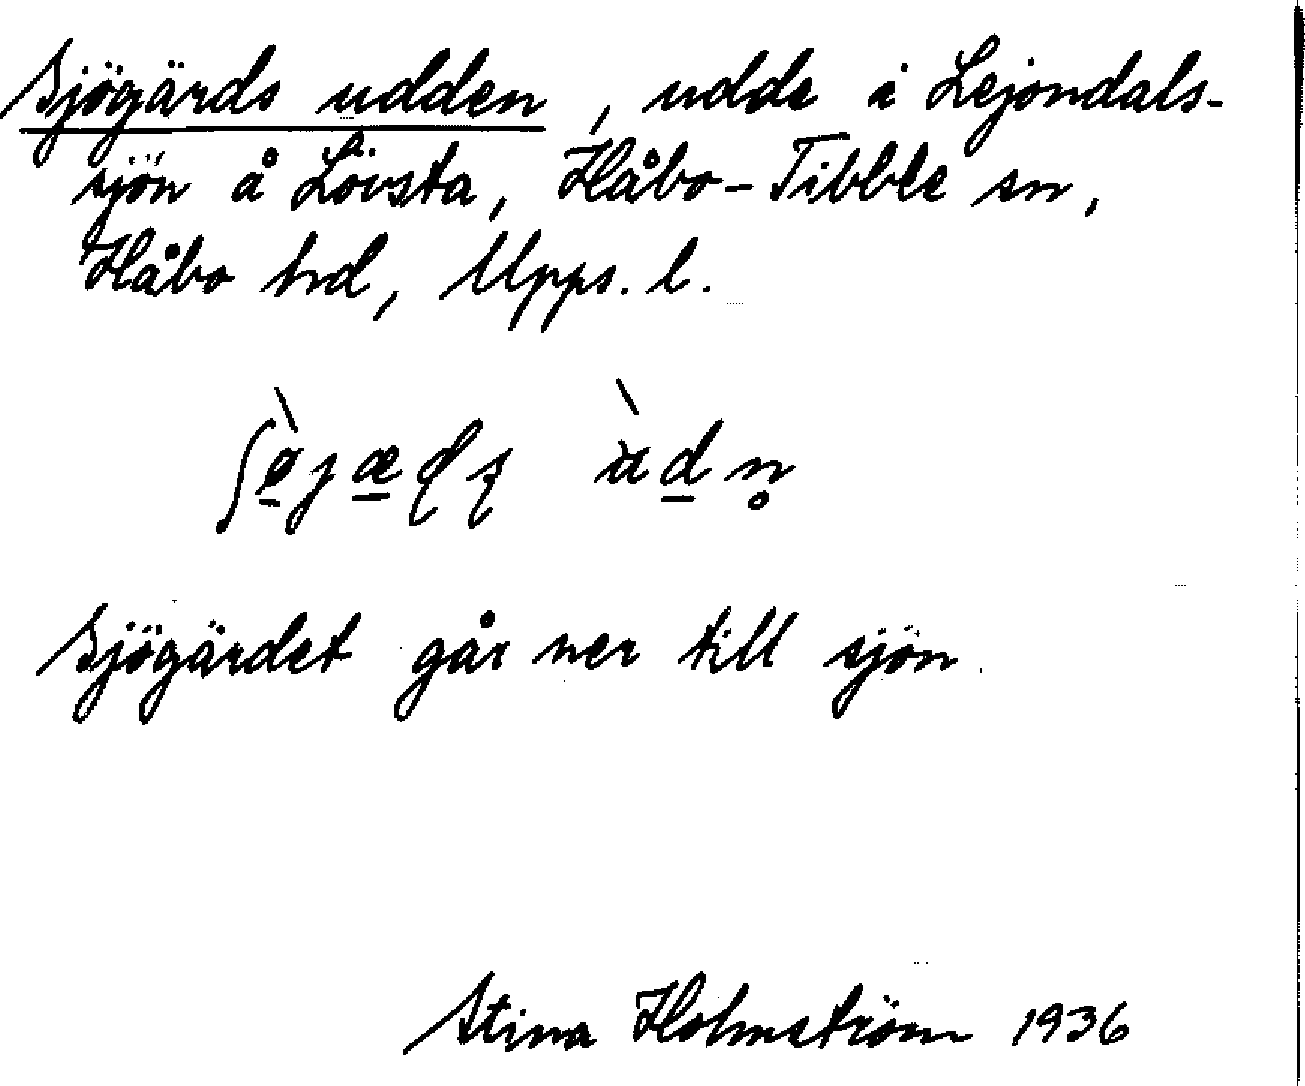 Sjögärds udden, udde i Lejondals-
sjön å Lövsta, Håbo-Tibble sn,
Håbo hrd, Upps. l.
Sjögärdet går ner till sjön.
Stina Holmström 1936